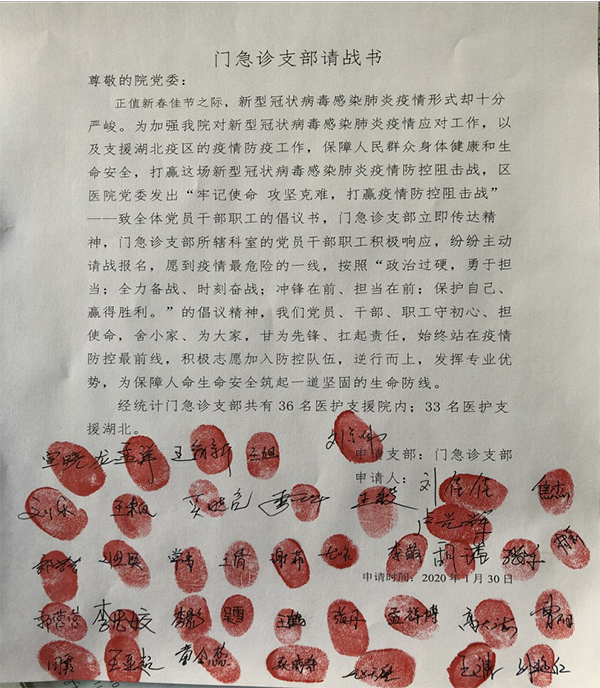 门急诊支部请战书
尊敬的院党委：
正值新春佳节之际，新型冠状病毒感染肺炎疫情形式却十分
严峻。为加强我院对新型冠状病毒感染肺炎疫情应对工作，以
及支援湖北疫区的疫情防疫工作，保障人民群众身体健康和生
命安全，打赢这场新型冠状病毒感染肺炎疫情防控阻击战，区
医院党委发出“牢记使命 攻坚克难，打赢疫情防控阻击战”
——致全体党员干部职工的倡议书，门急诊支部立即传达精
神，门急诊支部所辖科室的党员干部职工积极响应，纷纷主动
请战报名，愿到疫情最危险的一线，按照“政治过硬，勇于担
当；全力备战、时刻奋战；冲锋在前、担当在前；保护自己、
赢得胜利。”的倡议精神，我们党员、干部、职工守初心、担
使命，舍小家、为大家，甘为先锋、扛起责任，始终站在疫情
防控最前线，积极志愿加入防控队伍，逆行而上，发挥专业优
势，为保障人命生命安全筑起一道坚固的生命防线。
经统计门急诊支部共有 36 名医护支援院内；33 名医护支
援湖北。
申请支部：门急诊支部
申请人：
王旭
卢兴辉
李萌 胡靖
申请时间：2020 年 1 月 30 日
王倩 谢苏
张丹 孟祥博
王亚超 黄金蕊